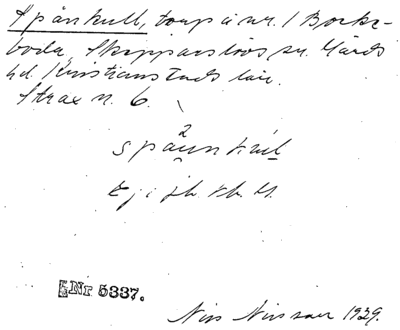 Spånkull, torp å nr. 1 Bocke-
boda, Skepparslövs sn. Gärds
hd. Kristianstads län.
Strax n. 6.
2
Nr 5337.
Nils Nilsson 1929.